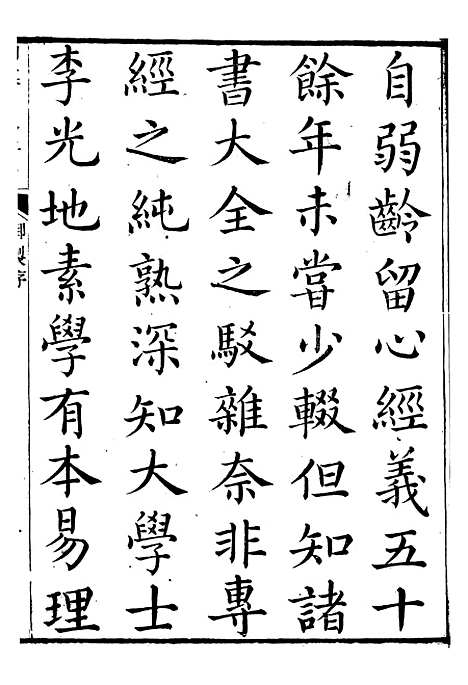 自弱齡留心經義五十
餘年未嘗少輟但知諸
書大全之駁雜奈非專
經之純熟深知大學士
李光地素學有本易理
御製序